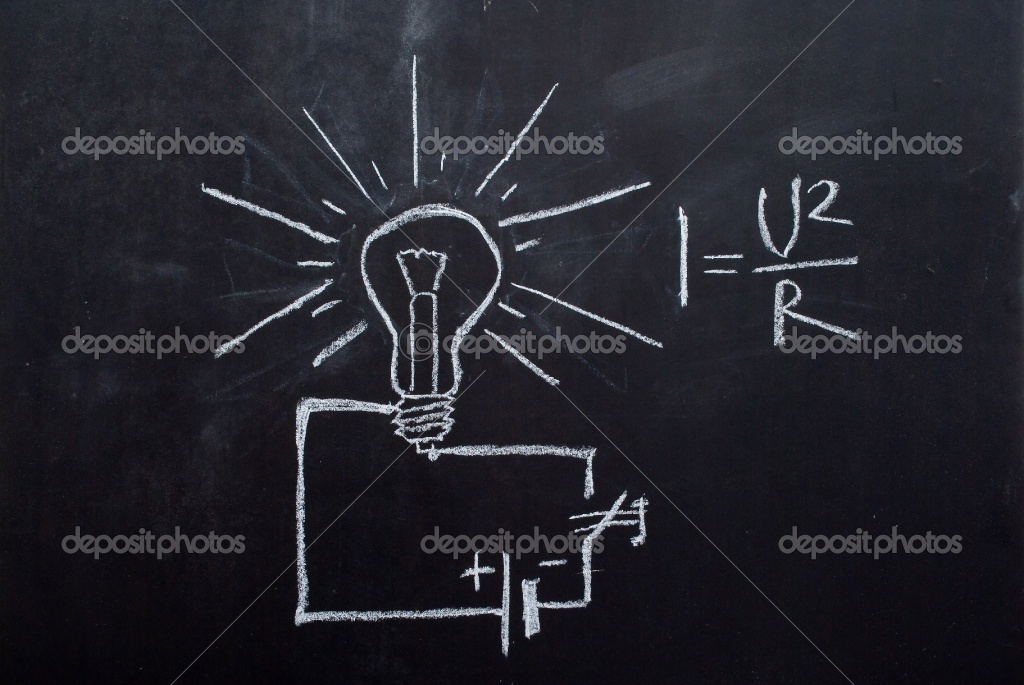 depositphotos depositphotos depositphotos
I = U²/R
depositphotos depositphotos depositphotos
+ -
depositphotos depositphotos depositphotos